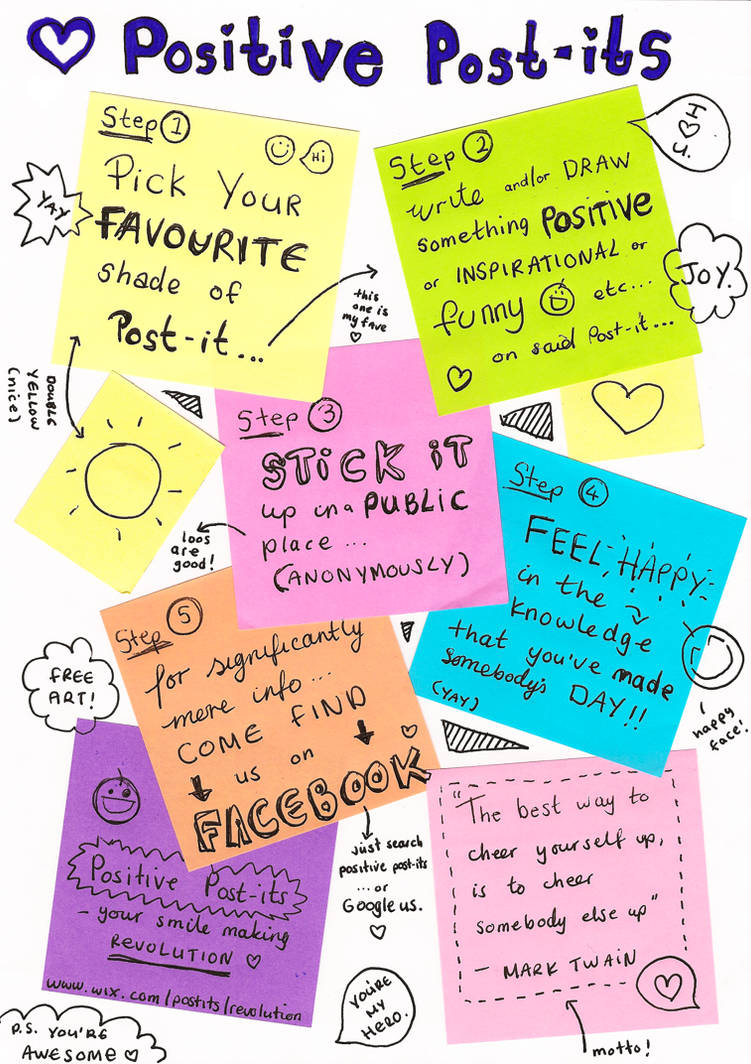 Positive Post-its
Step 1
Hi
Pick Your
FAVOURITE
shade of
Post-it...
YAY
Step 2
Hi
write and/or DRAW
something POSITIVE
or INSPIRATIONAL or
funny etc...
on said Post-it...
JOY.
this
one is
my fave
DOUBLE
YELLOW
(nice)
Step 3
STiCK iT
up in a PUBLIC
place...
(ANONYMOUSLY)
loos
are
good!
Step 4
FEEL HAPPY
in the
knowledge
that you've made
somebody's DAY!!
(YAY)
happy
face!
Step 5
for significantly
more info...
COME FIND
us on
FACEBOOK
FREE
ART!
just search
positive post-its
... or
Google us.
Positive Post-its
- your smile making
REVOLUTION
www.wix.com/postits/revolution
"The best way to
cheer yourself up,
is to cheer
somebody else up"
- MARK TWAIN
motto!
YOU'RE
MY
HERO.
P.S. YOU'RE
AWESOME